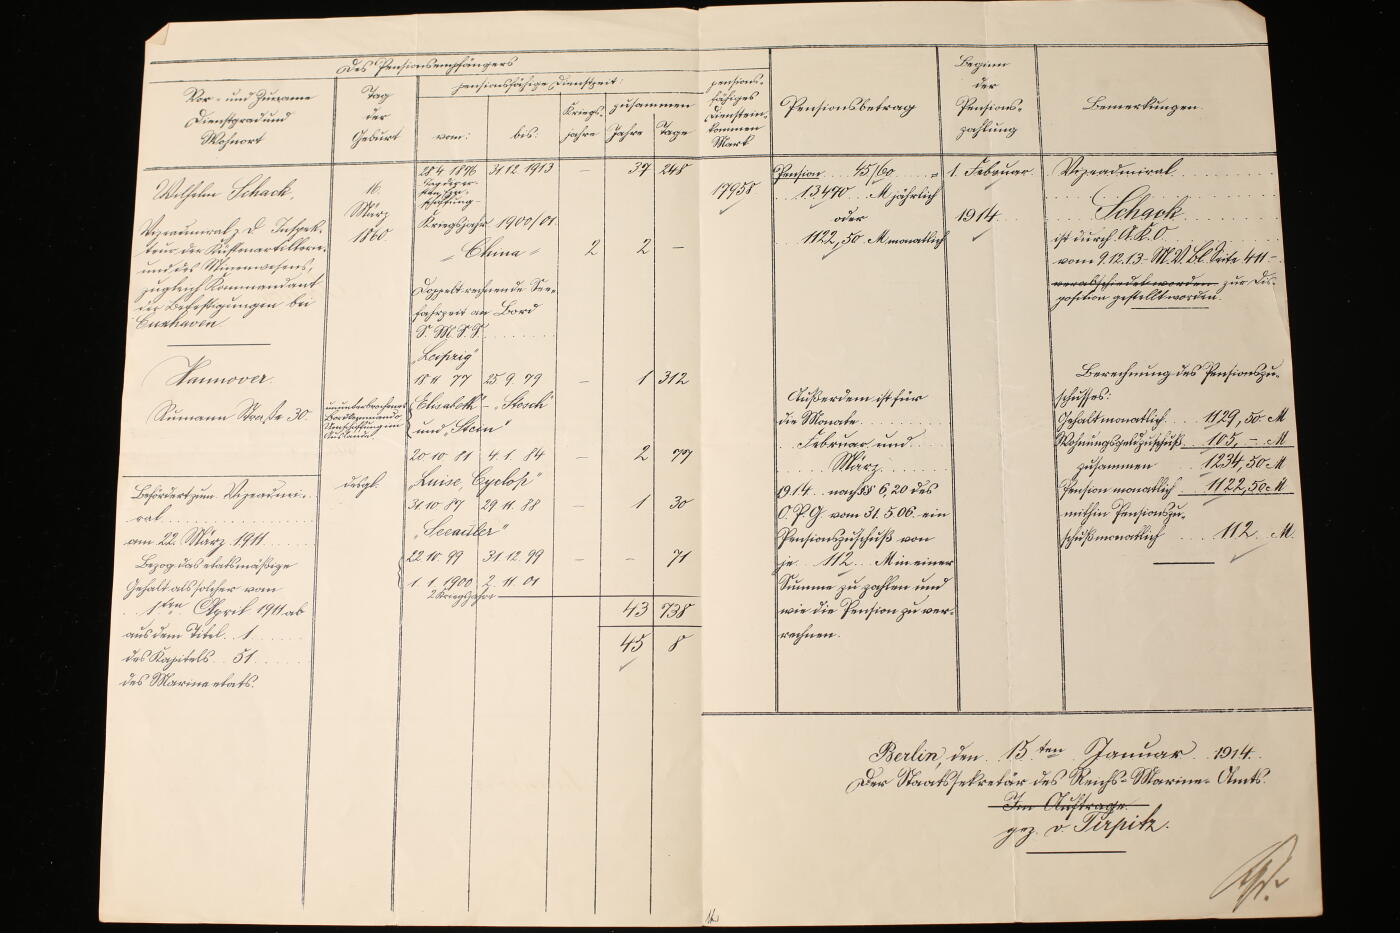 Des Pensionsempfängers
Vor- und Zuname
Dienstgrad und
Wohnort
Tag
der
Geburt
pensionsfähige Dienstzeit:
vom:
bis:
Kriegs-
jahre
zusammen
Jahre
Tage
pensions-
fähiges
Dienstein-
kommen
Mark
Pensionsbetrag
Beginn
der
Pensions-
zahlung
Bemerkungen.
Wilhelm Schack,
Vizeadmiral z. D. Inspek-
teur der Küstenartillerie
und des Minenwesens,
zugleich Kommandant
der Befestigungen bei
Cuxhaven
Hannover.
Rumann Straße 30
Befördert zum Vizeadmi-
ral
am 22. März 1911
Bezog das etatsmäßige
Gehalt als solcher vom
1ten April 1911 ab
aus dem Titel 1
des Kapitels 51
des Marineetats.
16.
März
1860
ununterbrochenes
Bordkommando
im
Auslande
desgl.
28 4 1876 31 12 1913 – 37 248
Tag der er-
Kriegsjahr 1900/01
„China“ 2 2 –
Doppeltrechnende See-
fahrzeit an Bord
S. M. S. S.
„Leipzig“
18 11 77 25 9. 79 – 1 312
„Elisabeth“ – „Stosch“
und „Stein“
20 10 81 4. 1. 84 – 2 77
„Luise, Cyclop“
31. 10. 87 29 11. 88 – 1 30
„Seeadler“
22. 10. 99 31. 12. 99 – – 71
1. 1. 1900 2. 11 01
2 Kriegsjahre
43 738
45 8
17958
Pension 45/60 =
13470 M jährlich
oder
1122,50 M monatlich
Außerdem ist für
die Monate
Februar und
März
1914 nach §§ 6, 20 des
O. P. G. vom 31. 5. 06. ein
Pensionszuschuß von
je 112 M in einer
Summe zu zahlen und
wie die Pension zu ver-
rechnen.
1. Februar
1914
Vizeadmiral
Schack
ist durch A. K. O.
vom 9. 12. 13 – M. V. Bl. Seite 411 –
verabschiedet worden zur Dis-
position gestellt worden.
Berechnung des Pensionszu-
schusses:
Gehalt monatlich 1129,50 M
Wohnungsgeldzuschuß 105,– M
zusammen 1234,50 M
Pension monatlich 1122,50 M
mithin Pensionszu-
schuß monatlich 112 M.
Berlin, den 15ten Januar 1914.
Der Staatssekretär des Reichs-Marine-Amts.
Im Auftrage.
gez. v Tirpitz.